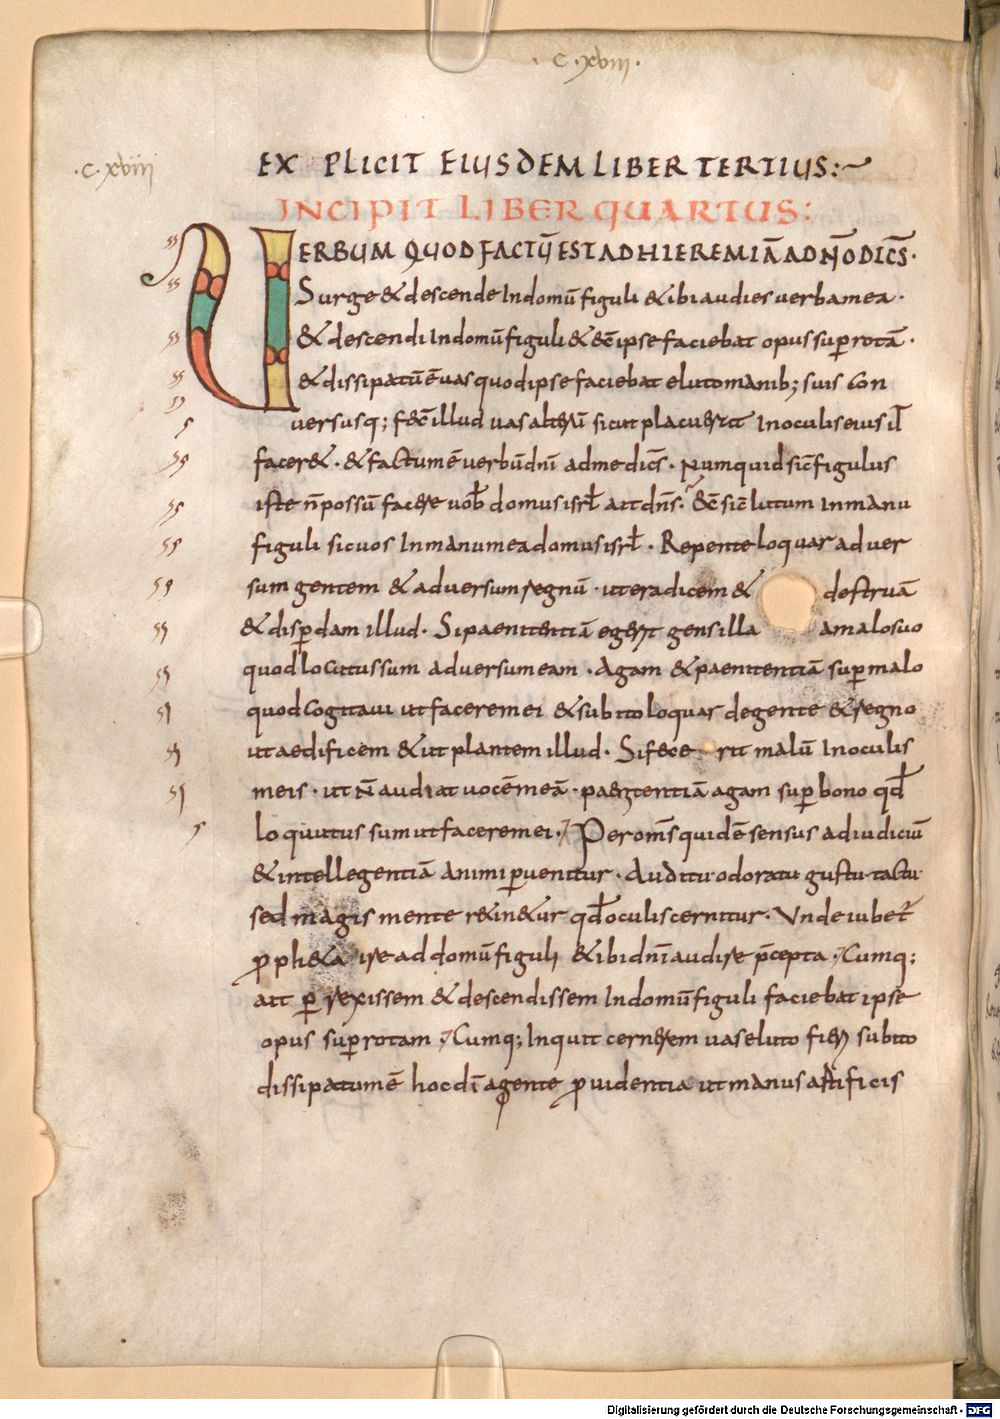 · C · xviii ·
· C · xviiii
EX PLICIT EIUSDEM LIBER TERTIUS:~
INCIPIT LIBER QUARTUS:
UERBUM QUOD FACTŪ EST AD HIEREMIĀ A DÑO DICĒS·
Surge & descende In domū figuli & ibi audies uerba mea·
& descendi In domū figuli & ecē ipse faciebat opus sup̄ rotā·
& dissipatū ē uas quod ipse faciebat e luto manib; suis Con
uersusq; fec̄ illud uas alterū sicut placuerat In oculis eius ut
facer&· & factum ē uerbū dnī ad me dicēs· Numquid sic̄ figulus
iste n̄ possū facere uob̄ domus isrl̄ ait dn̄s· Ecē sic̄ lutum In manu
figuli sic uos In manu mea domus isrl̄· Repente loquar aduer
sum gentem & aduersum regnū· ut eradicem & destruā
& disp̄dam illud· Si paenitentiā egerit gens illa a malo suo
quod locutus sum aduersum eam· Agam & paenitentiā sup̄ malo
quod Cogitaui ut facerem ei & subito loquar de gente & regno
ut aedificem & ut plantem illud· Si fece rit malū In oculis
meis· ut n̄ audiat uocē meā· paenitentiā agam sup̄ bono qd̄
loquutus sum ut facerem ei· Per om̄s quidē sensus ad iudiciū
& intellegentiā animi p̄uenitur· Auditu odoratu gustu tactu
sed magis mente r&in&ur qd̄ oculis cernitur· Unde iubet̄
p̄ph&a ire ad domū figuli & ibi dnī audire p̄cepta· Cumq;
ait p̄rexissem & descendissem In domū figuli faciebat ipse
opus sup̄ rotam· Cumq; Inquit cernerem uas e luto fieri subito
dissipatum ē hoc dī agente p̄uidentia ut manus artificis
Digitalisierung gefördert durch die Deutsche Forschungsgemeinschaft - DFG